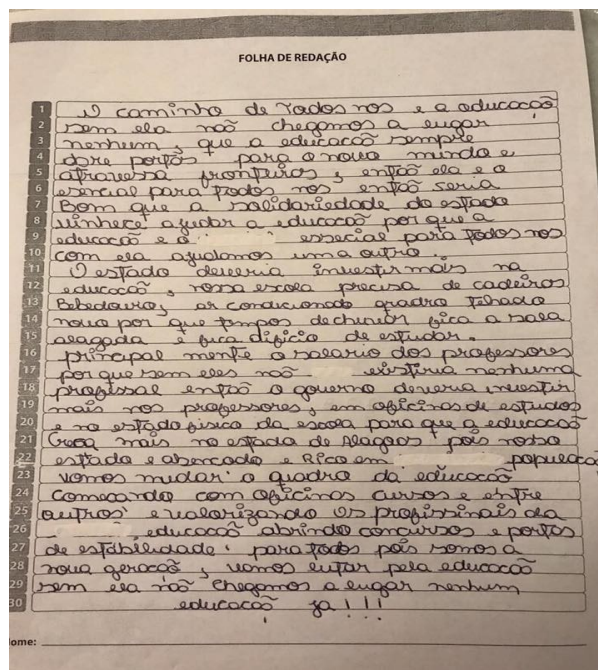 FOLHA DE REDAÇÃO
1 O caminho de Todos nos e a educacaõ
2 sem ela naõ chegamos a lugar
3 nenhum, que a educacaõ sempre
4 abre portas para o novo mundo e
5 atravessa fronteiras, entaõ ela e o
6 esencial para todos nos entaõ seria
7 Bom que a solidariedade do estado
8 vinhece ajudar a educacaõ por que a
9 educacaõ e o essecial para todos nos
10 com ela ajudamos uma outro.
11 O estado deveria investir mais na
12 educacaõ, nossa escola precisa de cadeiras
13 Bebedouro, ar condicionado quadro telhado
14 novo por que tempos de chuva fica a sala
15 alagada e fica dificio de estudar.
16 principal mente o salario dos professores
17 por que sem eles naõ existiria nenhuma
18 profissal entaõ o governo deveria investir
19 mais nos professores, em oficinas de estudos
20 e no estado fisico da escola para que a educacaõ
21 Creça mais no estado de Alagoas pois nosso
22 estado e abencado e Rico em populacaõ
23 vamos mudar o quadro da educacaõ
24 Comecando com oficinas cursos e entre
25 outros evalorizando os profissinais da
26 educacaõ abrindo concursos e portas
27 de estabilidade. para todos pois somos a
28 nova geracaõ, vamos lutar pela educacaõ
29 sem ela naõ chegamos a lugar nenhum
30 educacaõ ja!!!
ome: